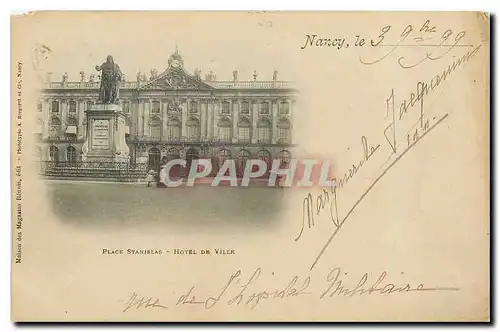 Nancy, le 3 9bre 99
Marguerite Jacquemin
CPARAMA
PLACE STANISLAS - HOTEL DE VILLE
rue de l'hôpital Militaire
Maison des Magasins Réunis, édit. - Phototypie A. Bergeret et Cie, Nancy.